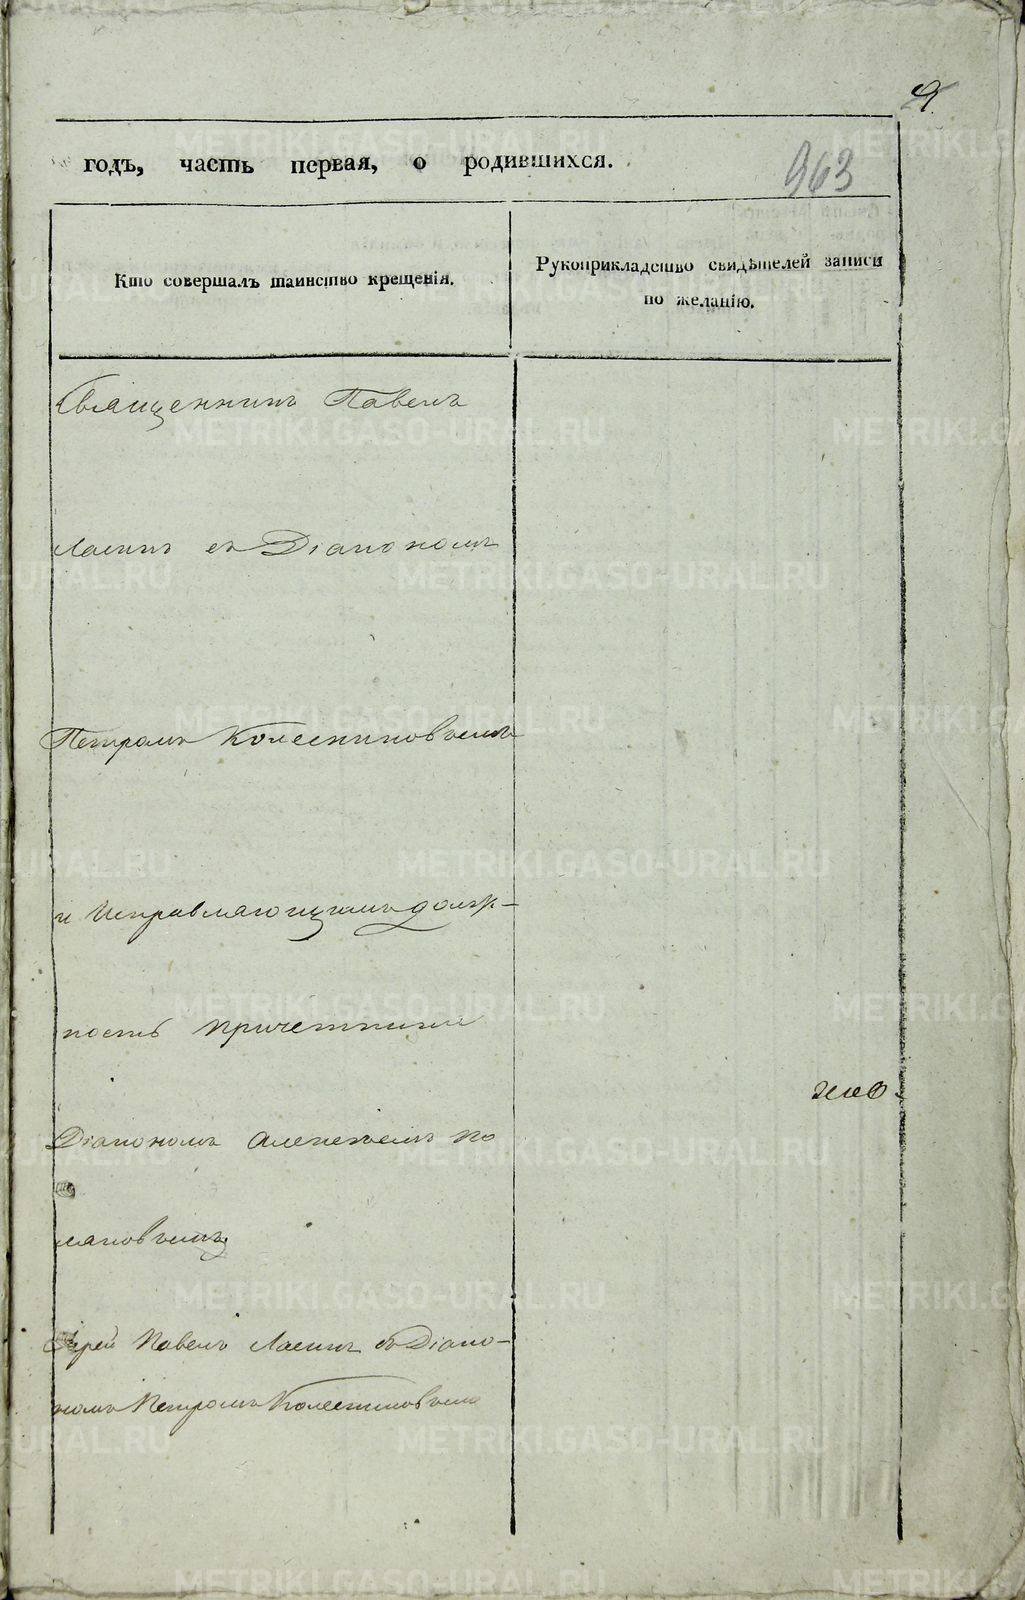 9.
годъ, часть первая, о родившихся.
963
Кто совершалъ таинство крещенія.
Рукоприкладство свидѣтелей записи
по желанію.
Священникъ Павелъ
съ Діакономъ
Петромъ Колесниковымъ
и Исправляющимъ долж-
ность причетника
Діакономъ Алексѣемъ По
ляковымъ
Іерей Павелъ съ Діако-
номъ Петромъ Колесниковымъ
METRIKI.GASO-URAL.RU